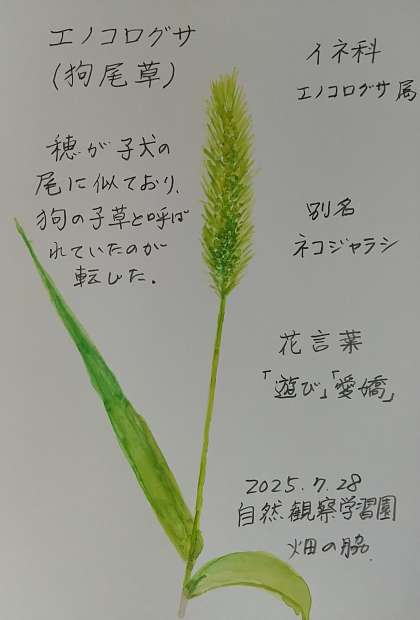 エノコログサ
(狗尾草)
穂が子犬の
尾に似ており、
狗の子草と呼ば
れていたのが
転じた.
イネ科
エノコログサ属
別名
ネコジャラシ
花言葉
「遊び」「愛嬌」
2025.7.28
自然観察学習園
畑の脇.